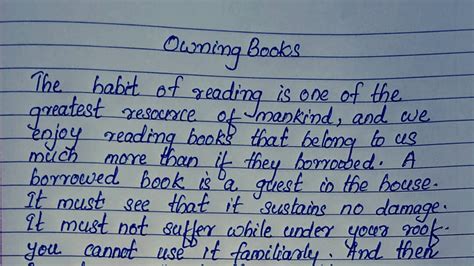 Owning Books
The habit of reading is one of the
greatest resource of mankind, and we
enjoy reading books that belong to us
much more than if they borrowed. A
borrowed book is a guest in the house.
It must see that it sustains no damage.
It must not suffer while under your roof.
you cannot use it familiarly. And then